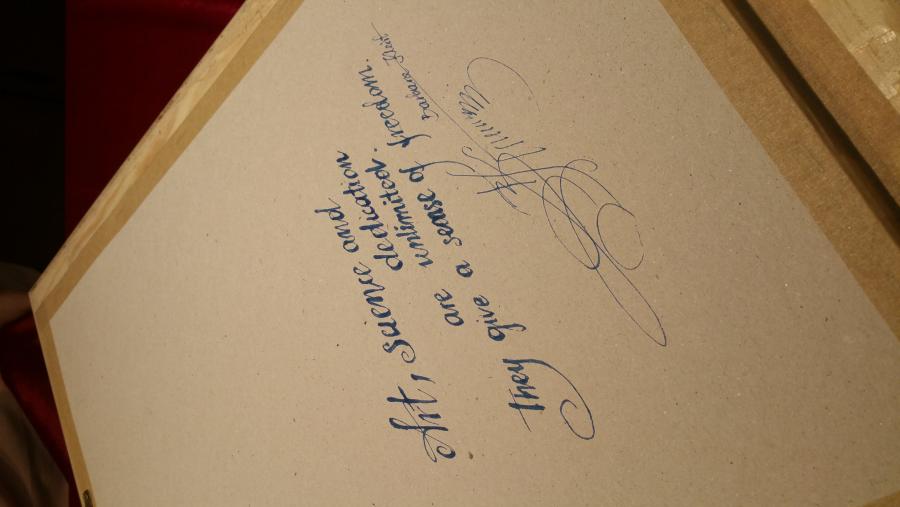 Art, science and
dedication
are unlimited.
They give a sense of freedom.
Barbara